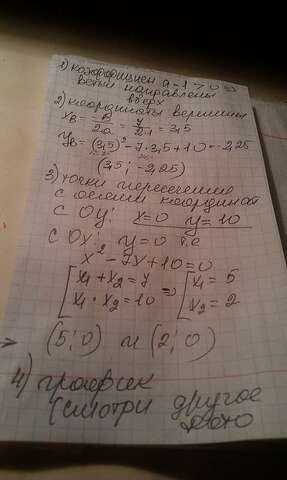 1) коэффициен a = 1 > 0 ⇒
ветви направлены
вверх
2) координаты вершины
x_в = -b/2a = 7/2·1 = 3,5
y_в = (3,5)² - 7·3,5 + 10 = -2,25
(3,5; -2,25)
3) точки пересечения
с осями координат
с Oy: x=0 y=10
с Ox: y=0 т.е
x² - 7x + 10 = 0
[x₁ + x₂ = 7 ⇒ [x₁ = 5
[x₁ · x₂ = 10 [x₂ = 2
(5; 0) и (2; 0)
4) график
(смотри другое
фото